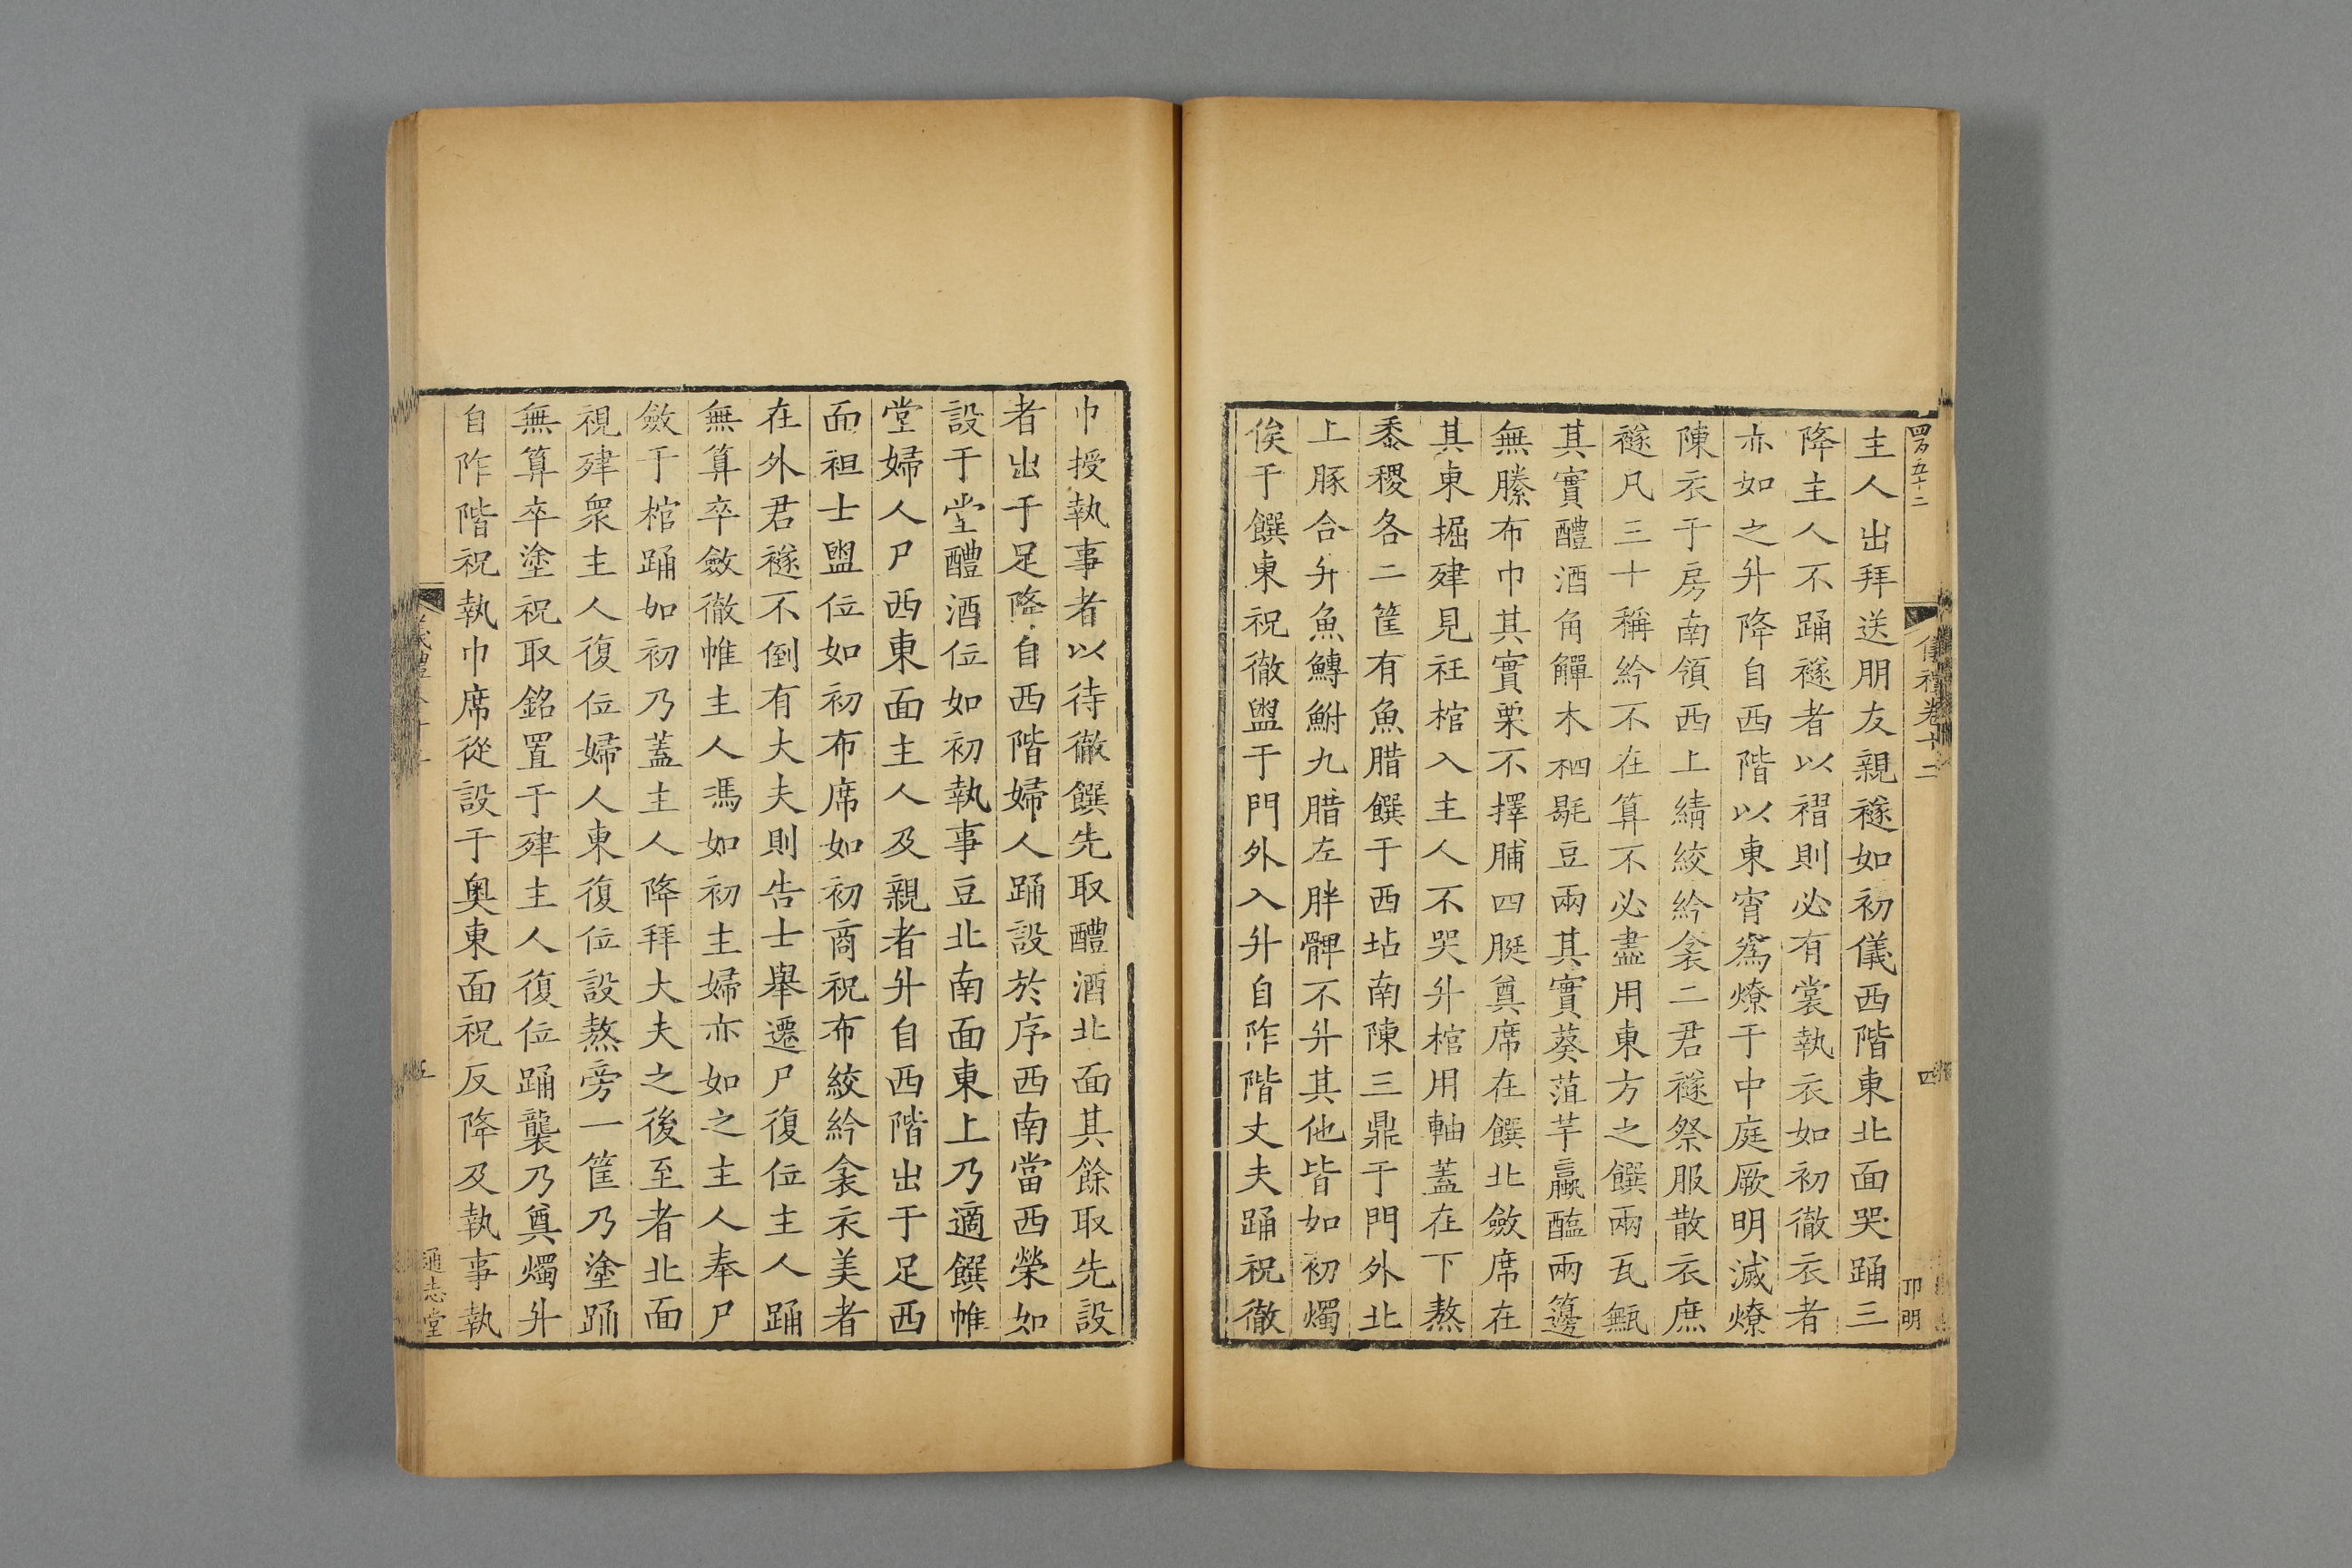 四百五十二
儀禮卷十二
四
卭明
主人出拜送朋友親襚如初儀西階東北面哭踊三
降主人不踊襚者以褶則必有裳執衣如初徹衣者
亦如之升降自西階以東宵爲燎于中庭厥明滅燎
陳衣于房南領西上綪絞紟衾二君襚祭服散衣庶
襚凡三十稱紟不在算不必盡用東方之饌兩瓦甒
其實醴酒角觶木柶毼豆兩其實葵菹芋蠃醢兩籩
無縢布巾其實栗不擇脯四脡奠席在饌北斂席在
其東掘肂見衽棺入主人不哭升棺用軸蓋在下熬
黍稷各二筐有魚腊饌于西坫南陳三鼎于門外北
上豚合升魚鱄鮒九腊左胖髀不升其他皆如初燭
俟于饌東祝徹盥于門外入升自阼階丈夫踊祝徹
巾授執事者以待徹饌先取醴酒北面其餘取先設
者出于足降自西階婦人踊設於序西南當西榮如
設于堂醴酒位如初執事豆北南面東上乃適饌帷
堂婦人尸西東面主人及親者升自西階出于足西
面袒士盥位如初布席如初商祝布絞紟衾衣美者
在外君襚不倒有大夫則告士舉遷尸復位主人踊
無算卒斂徹帷主人馮如初主婦亦如之主人奉尸
斂于棺踊如初乃蓋主人降拜大夫之後至者北面
視肂眾主人復位婦人東復位設熬旁一筐乃塗踊
無算卒塗祝取銘置于肂主人復位踊襲乃奠燭升
自阼階祝執巾席從設于奧東面祝反降及執事執
五
通志堂